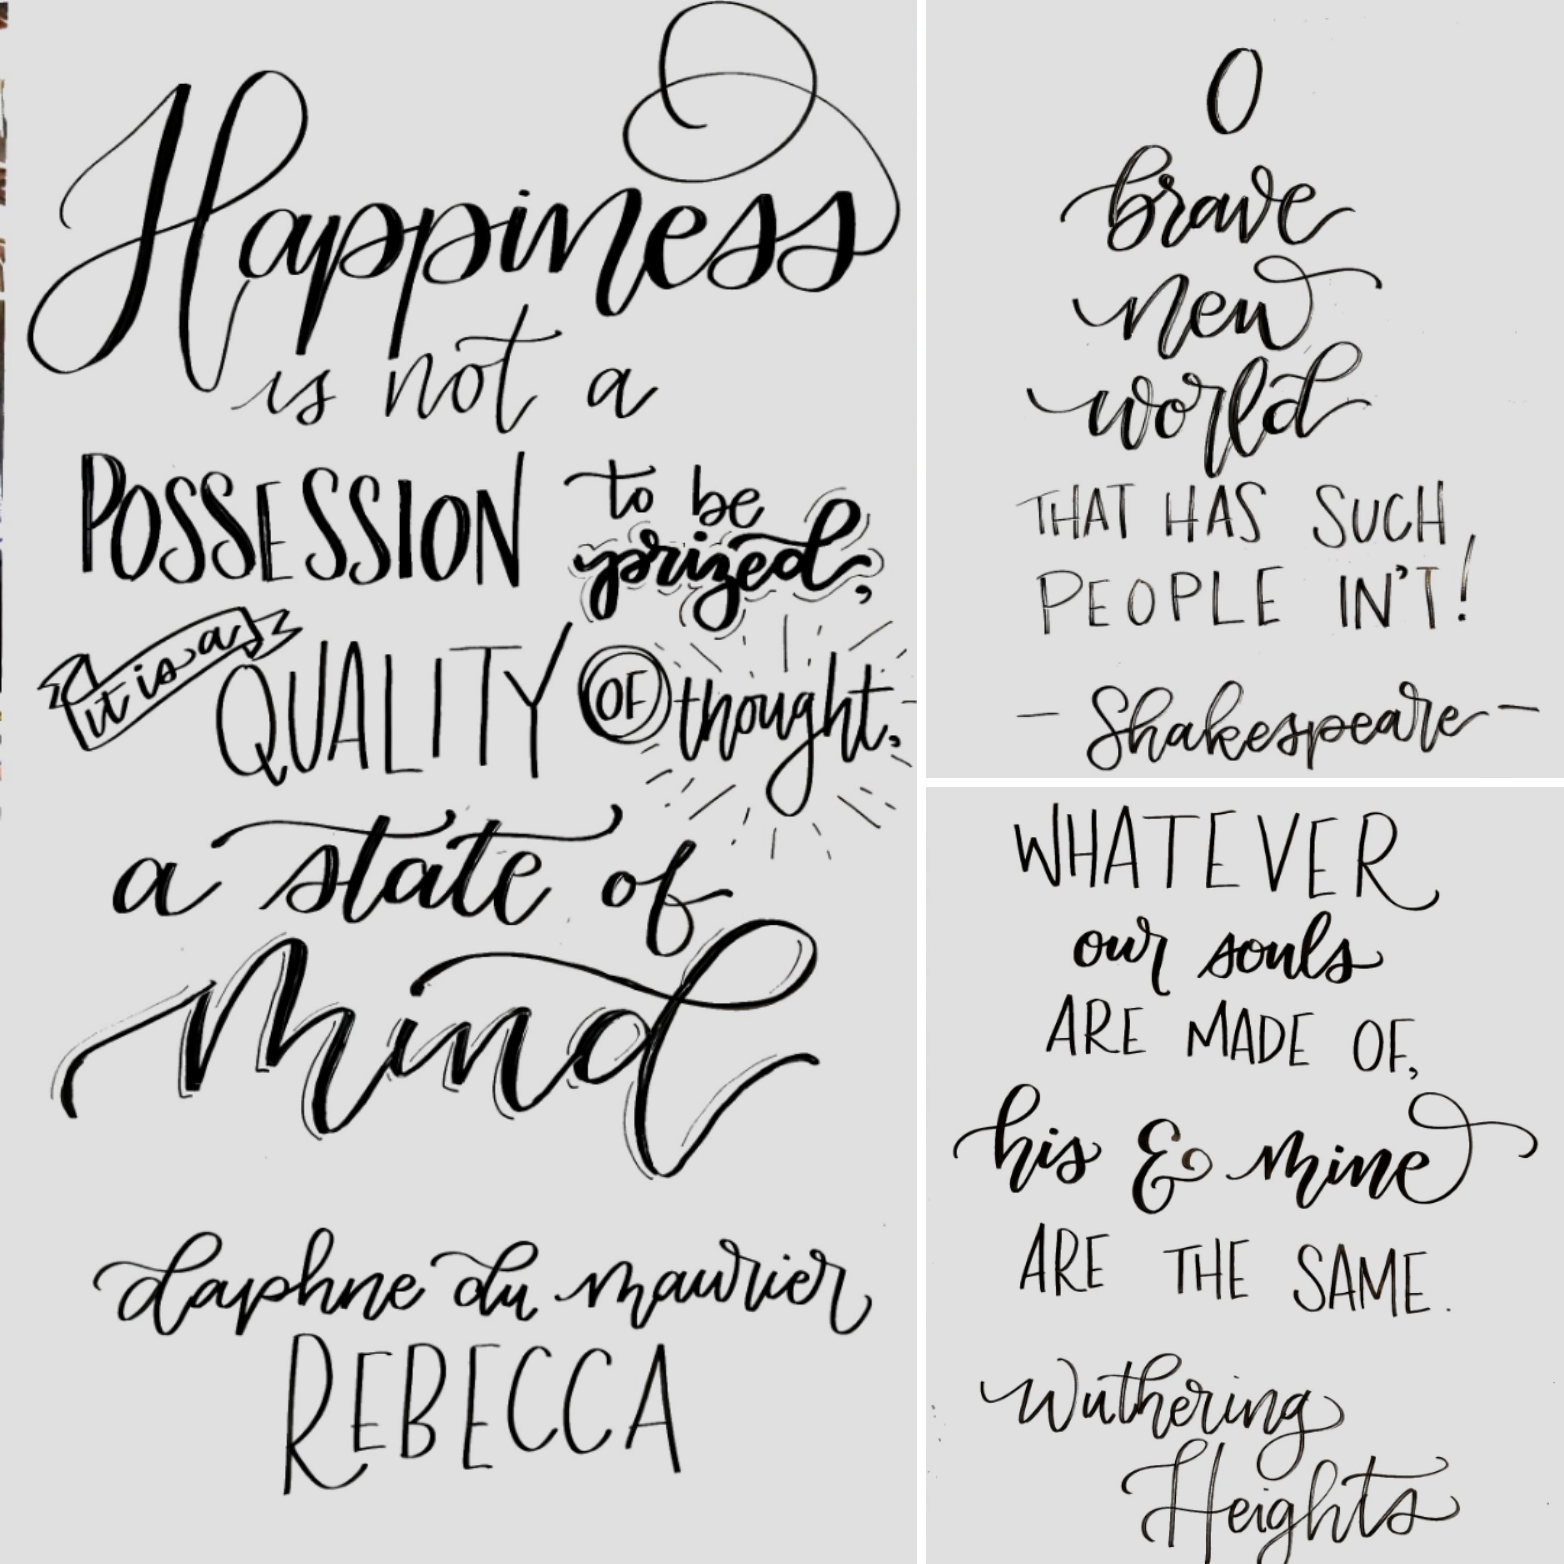 Happiness
is not a
POSSESSION to be
prized,
it is a
QUALITY OF thought,
a state of
Mind
daphne du maurier
REBECCA
O
brave
new
world
THAT HAS SUCH
PEOPLE IN'T!
- Shakespeare -
WHATEVER
our souls
ARE MADE OF,
his & mine
ARE THE SAME.
Wuthering
Heights